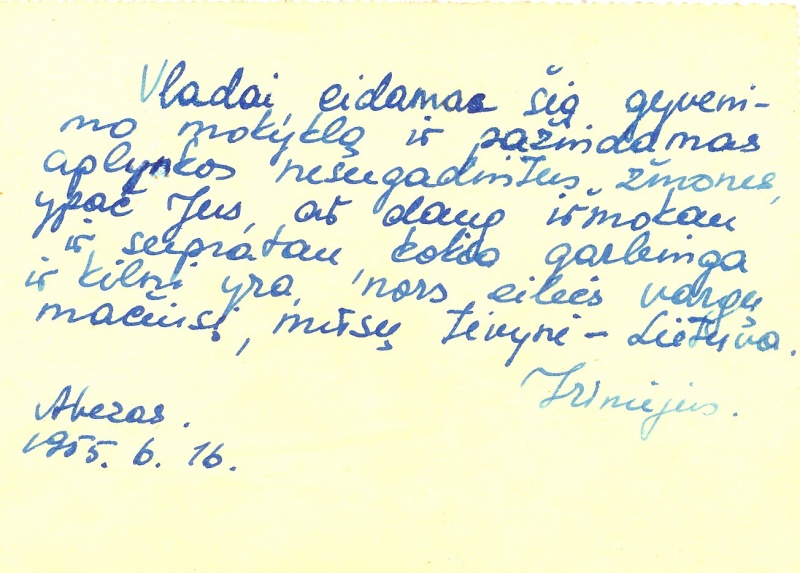 Vladai eidamas šią gyveni-
mo mokyklą ir pažindamas
aplinkos nesugadintus žmones,
ypač Jus, aš daug išmokau
ir supratau, kokia garbinga
ir kilni yra, nors eilės vargų
mačiusi, mūsų tėvynė - Lietuva.
Irinėjus.
Abezas.
1955. 6. 16.